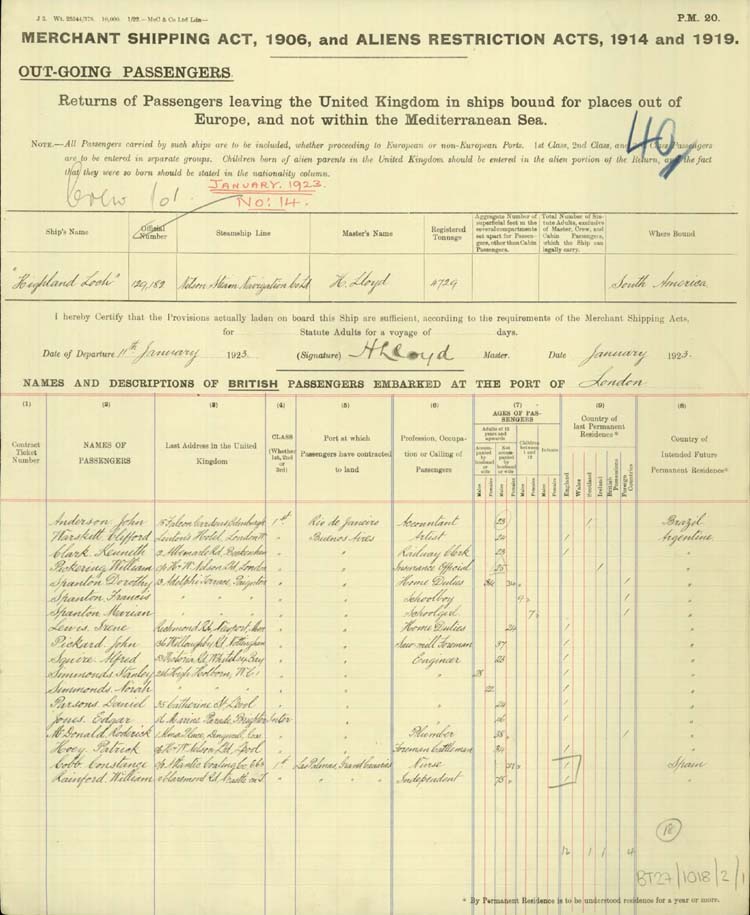 J 2. Wt. 22544/378. 10,000. 1/22.—McC & Co Ltd Ldn—
P.M. 20.
MERCHANT SHIPPING ACT, 1906, and ALIENS RESTRICTION ACTS, 1914 and 1919.
OUT-GOING PASSENGERS.
Returns of Passengers leaving the United Kingdom in ships bound for places out of
Europe, and not within the Mediterranean Sea.
40
NOTE.—All Passengers carried by such ships are to be included, whether proceeding to European or non-European Ports. 1st Class, 2nd Class, and Class Passengers
are to be entered in separate groups. Children born of alien parents in the United Kingdom should be entered in the alien portion of the Return, and the fact
that they were so born should be stated in the nationality column.
Crew 101
JANUARY. 1923.
No: 14.
Ship's Name Official Number Steamship Line Master's Name Registered Tonnage Aggregate Number of superficial feet in the several compartments set apart for Passengers, other than Cabin Passengers. Total Number of Statute Adults, exclusive of Master, Crew, and Cabin Passengers, which the Ship can legally carry. Where Bound
"Highland Loch" 129,182 Nelson Steam Navigation Co Ld H. Lloyd 4729 South America
I hereby Certify that the Provisions actually laden on board this Ship are sufficient, according to the requirements of the Merchant Shipping Acts,
for Statute Adults for a voyage of days.
Date of Departure 11th January 1923. (Signature) H Lloyd Master. Date January 1923.
NAMES AND DESCRIPTIONS OF BRITISH PASSENGERS EMBARKED AT THE PORT OF London
(1) (2) (3) (4) (5) (6) (7) (9) (8)
Contract Ticket Number NAMES OF PASSENGERS Last Address in the United Kingdom CLASS (Whether 1st, 2nd or 3rd) Port at which Passengers have contracted to land Profession, Occupation or Calling of Passengers AGES OF PASSENGERS Country of last Permanent Residence* Country of Intended Future Permanent Residence*
Adults of 12 years and upwards Accompanied by husband or wife Not accompanied by husband or wife Children between 1 and 12 Infants
Males Females Males Females Males Females Males Females England Wales Scotland Ireland British Possessions Foreign Countries
Anderson John Falcon Gardens Edinburgh 1st Rio de Janeiro Accountant 23 / Brazil
Warskett Clifford Hotel, London W " Buenos Aires Artist 24 / Argentine
Clark Kenneth Albemarle Rd, Beckenham " " Railway Clerk 23 / "
Pickering William c/o H & W Nelson Ltd, London " " Insurance Official 25 / "
Spanton Dorothy 3 Adelphi Terrace, Paignton " " Home Duties 34 / "
Spanton Francis " " " " Schoolboy 9 / "
Spanton Marian " " " " Schoolgirl 7 / "
Lewis Irene Richmond Rd, Newport, Mon " " Home Duties 24 / "
Pickard John 36 Willoughby St, Nottingham " " Saw mill Foreman 37 / "
Squire Alfred Victoria Rd, Whitley Bay " " Engineer 23 / "
Simmonds Stanley High Holborn, W.C.1 " " " 28 / "
Simmonds Norah " " " " 22 / "
Parsons Daniel 35 Catherine St, L'pool " " 24 / "
Jones Edgar 16 Marine Parade, Brighton " 16 / "
McDonald Roderick 1 Place, " " Plumber 35 / "
Hoey Patrick c/o H & W Nelson Ltd, L'pool " " Foreman Cattleman 34 / "
Cobb Constance c/o Atlantic Coaling Co 1st Las Palmas, Grand Canaries Nurse 21 / Spain
Rainford William Claremont Rd, " " " " Independent 75 / "
12
12 1 1 4
BT27/1018/2/1
* By Permanent Residence is to be understood residence for a year or more.